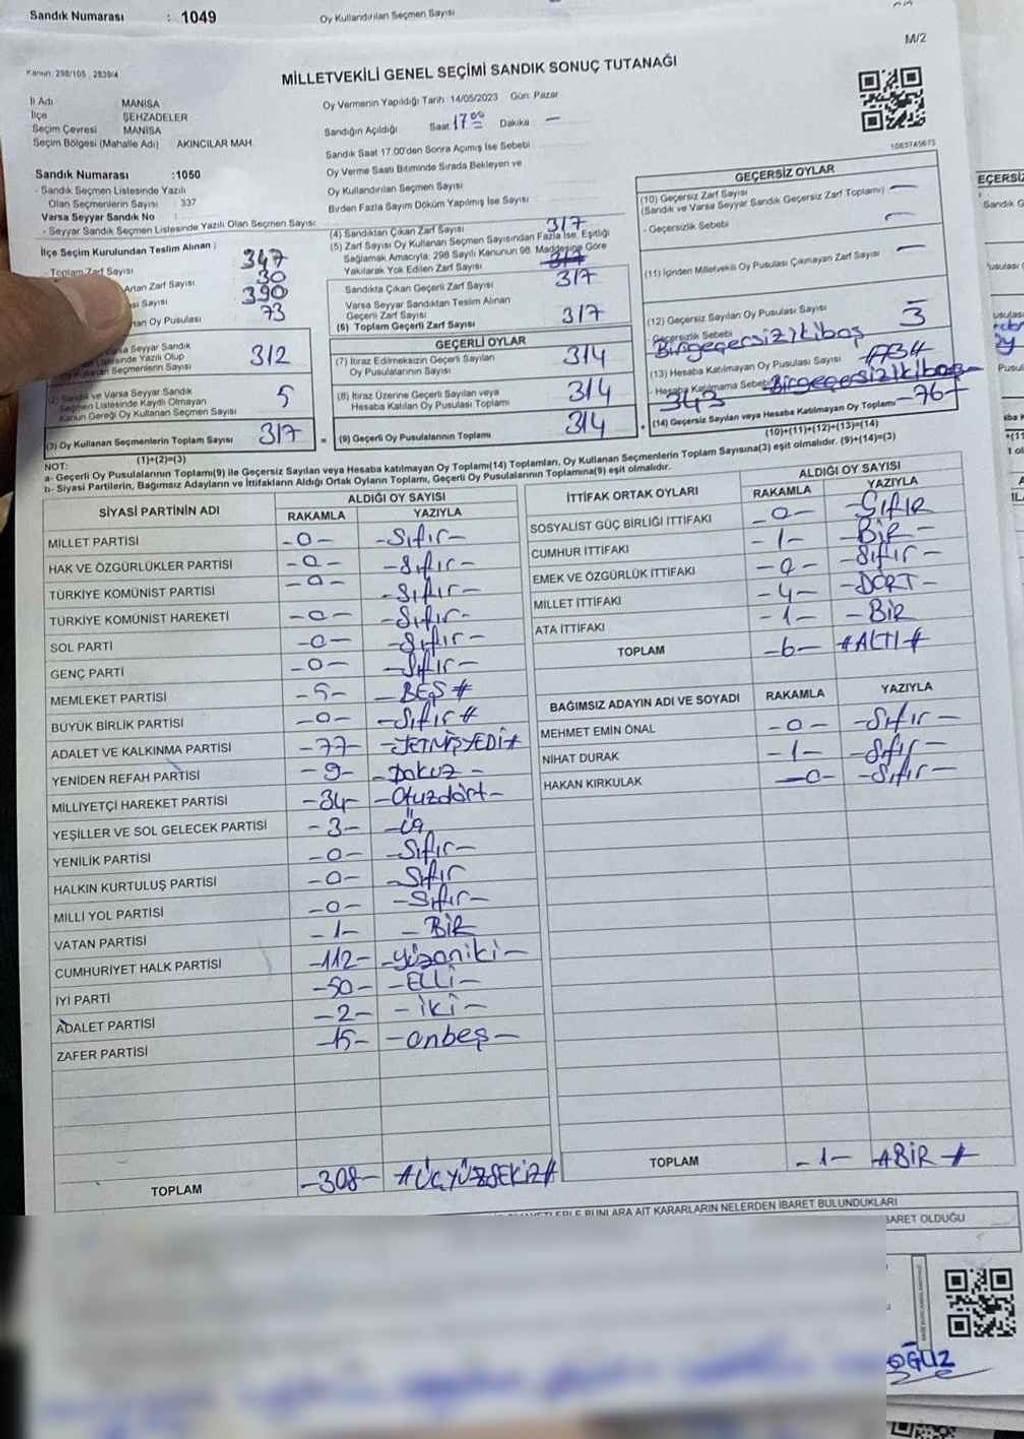 Sandık Numarası : 1049
Oy Kullandırılan Seçmen Sayısı
M/2
Kanun: 298/105 2839/4
MİLLETVEKİLİ GENEL SEÇİMİ SANDIK SONUÇ TUTANAĞI
İl Adı MANİSA
İlçe ŞEHZADELER
Seçim Çevresi MANİSA
Seçim Bölgesi (Mahalle Adı) AKINCILAR MAH
Oy Vermenin Yapıldığı Tarih :14/05/2023 Gün: Pazar
Sandığın Açıldığı Saat 17 00 Dakika —
Sandık Saat 17.00'den Sonra Açımış İse Sebebi
Oy Verme Saati Bitiminde Sırada Bekleyen ve
Oy Kullandırılan Seçmen Sayısı
Birden Fazla Sayım Döküm Yapılmış İse Sayısı
1063745675
Sandık Numarası :1050
- Sandık Seçmen Listesinde Yazılı
Olan Seçmenlerin Sayısı 337
Varsa Seyyar Sandık No :
- Seyyar Sandık Seçmen Listesinde Yazılı Olan Seçmen Sayısı:
İlçe Seçim Kurulundan Teslim Alınan ;
- Toplam Zarf Sayısı 347
Artan Zarf Sayısı 30
Sayısı 390
Oy Pusulası 73
Seyyar Sandık
Listesinde Yazılı Olup
Kullanan Seçmenlerin Sayısı 312
(2) Sandık ve Varsa Seyyar Sandık
Seçmen Listesinde Kayıtlı Olmayan
Kanun Gereği Oy Kullanan Seçmen Sayısı 5
(3) Oy Kullanan Seçmenlerin Toplam Sayısı 317
(1)+(2)=(3)
(4) Sandıktan Çıkan Zarf Sayısı 317
(5) Zarf Sayısı Oy Kullanan Seçmen Sayısından Fazla İse, Eşitliği
Sağlamak Amacıyla; 298 Sayılı Kanunun 98. Maddesine Göre
Yakılarak Yok Edilen Zarf Sayısı
Sandıkta Çıkan Geçerli Zarf Sayısı 317
Varsa Seyyar Sandıktan Teslim Alınan
Geçerli Zarf Sayısı
(6) Toplam Geçerli Zarf Sayısı 317
GEÇERLİ OYLAR
(7) İtiraz Edilmeksizin Geçerli Sayılan
Oy Pusulalarının Sayısı 314
(8) İtiraz Üzerine Geçerli Sayılan veya
Hesaba Katılan Oy Pusulası Toplamı 314
= (9) Geçerli Oy Pusulalarının Toplamı 314
GEÇERSİZ OYLAR
(10) Geçersiz Zarf Sayısı —
(Sandık ve Varsa Seyyar Sandık Geçersiz Zarf Toplamı)
- Geçersizlik Sebebi —
(11) İçinden Milletvekili Oy Pusulası Çıkmayan Zarf Sayısı —
(12) Geçersiz Sayılan Oy Pusulası Sayısı 3
- Geçersizlik Sebebi Birgeçersiz/ikiboş
(13) Hesaba Katılmayan Oy Pusulası Sayısı
- Hesaba Katılmama Sebebi
343
+ (14) Geçersiz Sayılan veya Hesaba Katılmayan Oy Toplamı —76—
(10)+(11)+(12)+(13)=(14)
NOT:
a- Geçerli Oy Pusulalarının Toplamı(9) ile Geçersiz Sayılan veya Hesaba katılmayan Oy Toplamı(14) Toplamları, Oy Kullanan Seçmenlerin Toplam Sayısına(3) eşit olmalıdır. (9)+(14)=(3)
b- Siyasi Partilerin, Bağımsız Adayların ve İttifakların Aldığı Ortak Oyların Toplamı, Geçerli Oy Pusulalarının Toplamına(9) eşit olmalıdır.
SİYASİ PARTİNİN ADI ALDIĞI OY SAYISI
RAKAMLA YAZIYLA
MİLLET PARTİSİ -0- -Sıfır-
HAK VE ÖZGÜRLÜKLER PARTİSİ -0- -Sıfır-
TÜRKİYE KOMÜNİST PARTİSİ -0- -Sıfır-
TÜRKİYE KOMÜNİST HAREKETİ -0- -Sıfır-
SOL PARTİ -0- -Sıfır-
GENÇ PARTİ -0- -Sıfır-
MEMLEKET PARTİSİ -5- -BEŞ#
BÜYÜK BİRLİK PARTİSİ -0- -Sıfır#
ADALET VE KALKINMA PARTİSİ -77- -YETMİŞYEDİ#
YENİDEN REFAH PARTİSİ -9- -Dokuz-
MİLLİYETÇİ HAREKET PARTİSİ -34- -Otuzdört-
YEŞİLLER VE SOL GELECEK PARTİSİ -3- -Üç
YENİLİK PARTİSİ -0- -Sıfır-
HALKIN KURTULUŞ PARTİSİ -0- -Sıfır
MİLLİ YOL PARTİSİ -0- -Sıfır-
VATAN PARTİSİ -1- -BİR
CUMHURİYET HALK PARTİSİ -112- -yüzoniki-
İYİ PARTİ -50- -ELLİ-
ADALET PARTİSİ -2- -iki-
ZAFER PARTİSİ -15- -onbeş-
TOPLAM -308- #ÜÇYÜZSEKİZ#
İTTİFAK ORTAK OYLARI ALDIĞI OY SAYISI
RAKAMLA YAZIYLA
SOSYALİST GÜÇ BİRLİĞİ İTTİFAKI -0- -SIFIR
CUMHUR İTTİFAKI -1- -BİR-
EMEK VE ÖZGÜRLÜK İTTİFAKI -0- -Sıfır-
MİLLET İTTİFAKI -4- -DÖRT-
ATA İTTİFAKI -1- -BİR
TOPLAM -6- #ALTI#
BAĞIMSIZ ADAYIN ADI VE SOYADI RAKAMLA YAZIYLA
MEHMET EMİN ÖNAL -0- -Sıfır-
NİHAT DURAK -1- -Sıfır-
HAKAN KIRKULAK -0- -Sıfır-
TOPLAM -1- #BİR#
BUNLARA AİT KARARLARIN NELERDEN İBARET BULUNDUKLARI
İBARET OLDUĞU
OĞUZ